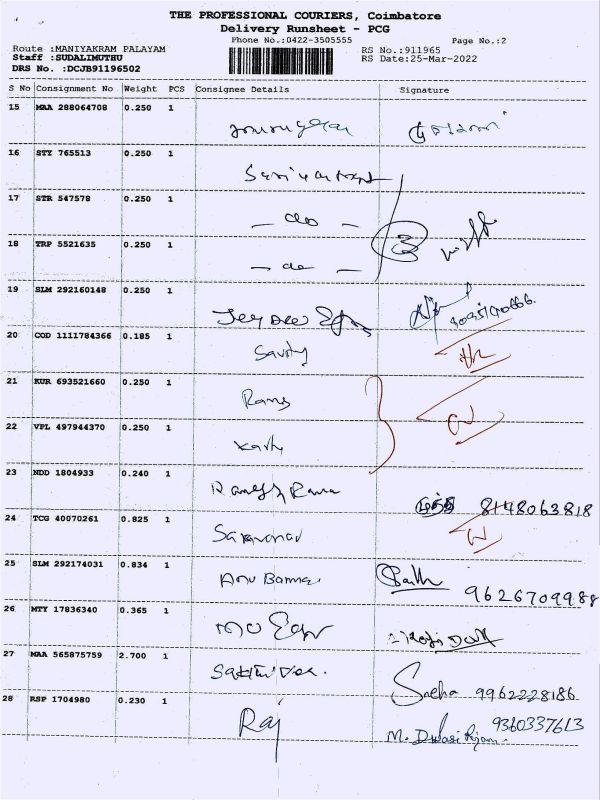 THE PROFESSIONAL COURIERS, Coimbatore
Delivery Runsheet - PCG
Phone No.:0422-3505555 Page No.:2
Route :MANIYAKRAM PALAYAM RS No.:911965
Staff :SUDALIMUTHU RS Date:25-Mar-2022
DRS No. :DCJB91196502
S No Consignment No Weight PCS Consignee Details Signature
15 MAA 288064708 0.250 1
16 STY 765513 0.250 1
17 STR 547578 0.250 1 - do -
18 TRP 5521635 0.250 1 - do -
19 SLM 292160148 0.250 1
20 COD 1111784366 0.185 1
21 KUR 693521660 0.250 1 Ramy
22 VPL 497944370 0.250 1
23 NDD 1804933 0.240 1 8148063818
24 TCG 40070261 0.825 1 Saravanan
25 SLM 292174031 0.834 1 9626709988
26 MTY 17836340 0.365 1
27 MAA 565875759 2.700 1 Sakthivel. Sneha 9962228186
28 RSP 1704980 0.230 1 Raj 9360337613